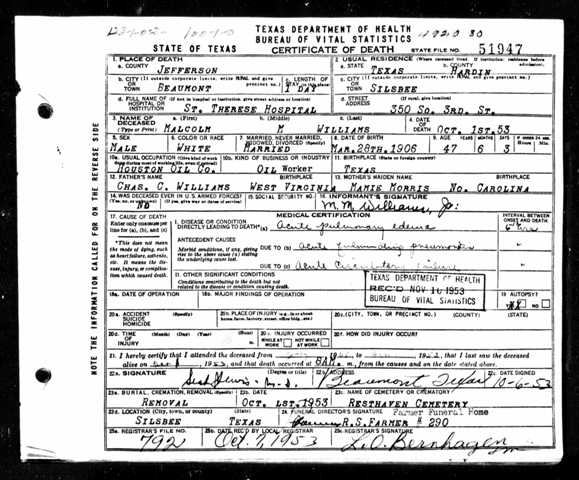 TEXAS DEPARTMENT OF HEALTH
BUREAU OF VITAL STATISTICS
STATE OF TEXAS
CERTIFICATE OF DEATH
STATE FILE NO. 51947
1. PLACE OF DEATH
a. COUNTY JEFFERSON
2. USUAL RESIDENCE (Where deceased lived. If institution: residence before admission).
a. STATE TEXAS
b. COUNTY HARDIN
b. CITY (If outside corporate limits, write RURAL and give precinct no.) OR TOWN BEAUMONT
c. LENGTH OF STAY 1 DAY
c. CITY (If outside corporate limits, write RURAL and give precinct no.) OR TOWN SILSBEE
d. FULL NAME OF HOSPITAL OR INSTITUTION ST. THERESE HOSPITAL
d. STREET ADDRESS (If rural, give location) 350 SO. 3RD. ST.
3. NAME OF DECEASED (Type or Print) a. (First) MALCOLM b. (Middle) M c. (Last) WILLIAMS
4. DATE OF DEATH OCT. 1ST.53
5. SEX MALE
6. COLOR OR RACE WHITE
7. MARRIED, NEVER MARRIED, WIDOWED, DIVORCED (Specify) MARRIED
8. DATE OF BIRTH MAR.28TH.1906
47 6 3
10a. USUAL OCCUPATION HOUSTON OIL CO.
10b. KIND OF BUSINESS OR INDUSTRY OIL Worker
11. BIRTHPLACE (State or foreign country) TEXAS
12. FATHER'S NAME CHAS. C. WILLIAMS
BIRTHPLACE WEST VIRGINIA
13. MOTHER'S MAIDEN NAME MAMIE MORRIS
BIRTHPLACE NO. CAROLINA
14. WAS DECEASED EVER IN U.S. ARMED FORCES? NO
15. SOCIAL SECURITY NO.
16. INFORMANT'S SIGNATURE M. M. Williams, Jr.
MEDICAL CERTIFICATION
17. CAUSE OF DEATH
Enter only one cause per line for (a), (b), and (c)
I. DISEASE OR CONDITION DIRECTLY LEADING TO DEATH (a) Acute pulmonary edema
INTERVAL BETWEEN ONSET AND DEATH
*This does not mean the mode of dying, such as heart failure, asthenia, etc. It means the disease, injury, or complication which caused death.
ANTECEDENT CAUSES
Morbid conditions, if any, giving rise to the above cause (a) stating the underlying cause last.
DUE TO (b) Acute fulminating pneumonia
DUE TO (c) Acute
II. OTHER SIGNIFICANT CONDITIONS
Conditions contributing to the death but not related to the disease or condition causing death.
TEXAS DEPARTMENT OF HEALTH
REC'D NOV 10 1953
BUREAU OF VITAL STATISTICS
18a. DATE OF OPERATION
18b. MAJOR FINDINGS OF OPERATION
19. AUTOPSY?
20a. ACCIDENT SUICIDE HOMICIDE (Specify)
20b. PLACE OF INJURY
20c. (CITY, TOWN, OR PRECINCT NO.) (COUNTY) (STATE)
20d. TIME OF INJURY (Month) (Day) (Year) (Hour)
20e. INJURY OCCURRED
WHILE AT WORK NOT WHILE AT WORK
20f. HOW DID INJURY OCCUR?
21. I hereby certify that I attended the deceased from
alive on 1953, and that death occurred at 8AM m., from the causes and on the date stated above.
22a. SIGNATURE (Degree or title)
22b. ADDRESS Beaumont Texas
22c. DATE SIGNED 10-6-53
23a. BURIAL, CREMATION, REMOVAL (Specify) REMOVAL
23b. DATE OCT. 1ST.1953
23c. NAME OF CEMETERY OR CREMATORY RESTHAVEN CEMETERY
23d. LOCATION (City, town, or county) (State) SILSBEE TEXAS
24. FUNERAL DIRECTOR'S SIGNATURE Farmer Funeral Home
R.S.FARMER # 290
25a. REGISTRAR'S FILE NO. 792
25b. DATE REC'D BY LOCAL REGISTRAR Oct. 7, 1953
25c. REGISTRAR'S SIGNATURE L.O. Bernhagen
NOTE THE INFORMATION CALLED FOR ON THE REVERSE SIDE